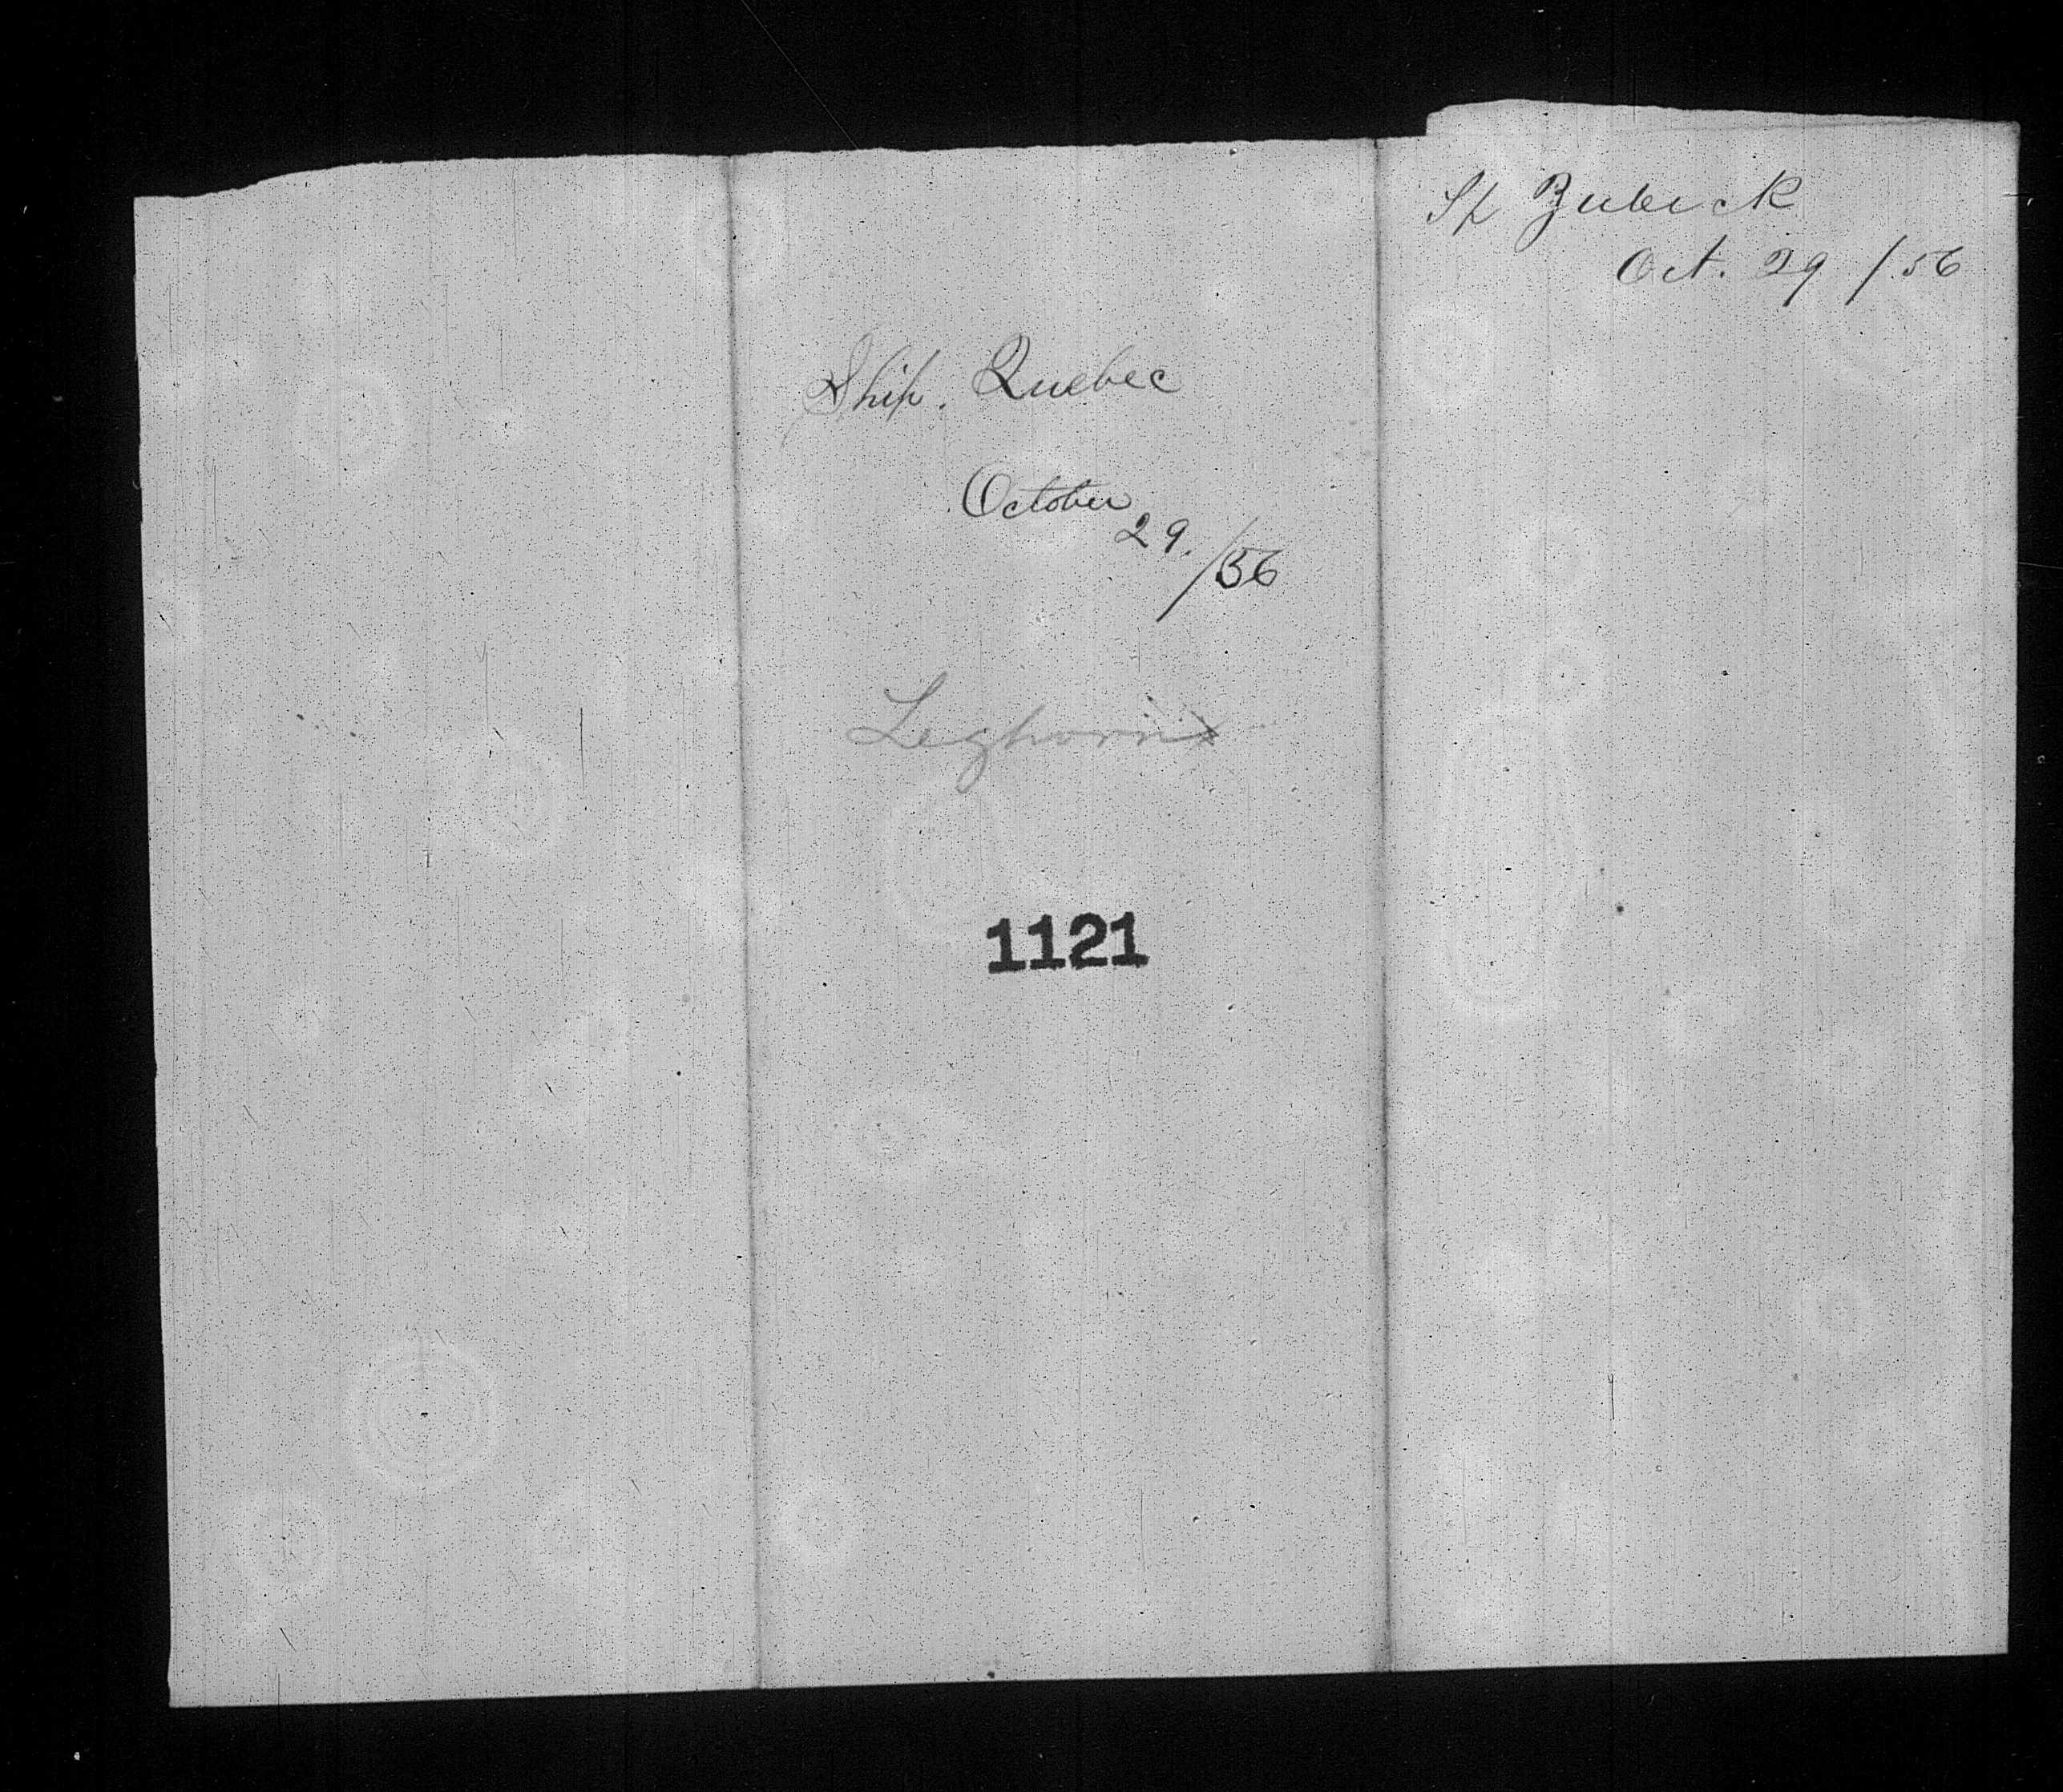 Ship. Quebec
October
29. /56
Leghorn
1121
Sp Zubeck
Oct. 29 /56